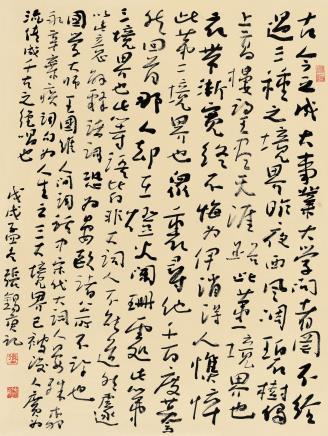 古今之成大事業大学問者罔不经
過三種之境界昨夜西風凋碧樹獨
上高樓望盡天涯路此第一境界也
衣帶漸寬終不悔為伊消得人憔悴
此第二境界也衆裏尋他千百度驀
然回首那人却在燈火闌珊處此第
三境界也此等語皆非大詞人不能道然遽
以此意解釋諸詞恐为晏歐諸公所不許也
國学大师王國维人间词话中宋代大词人晏殊柳
永辛棄疾词句为人生之三大境界已被後人廣为
流传成千古之绝唱也
戊戌孟冬張錫庚记